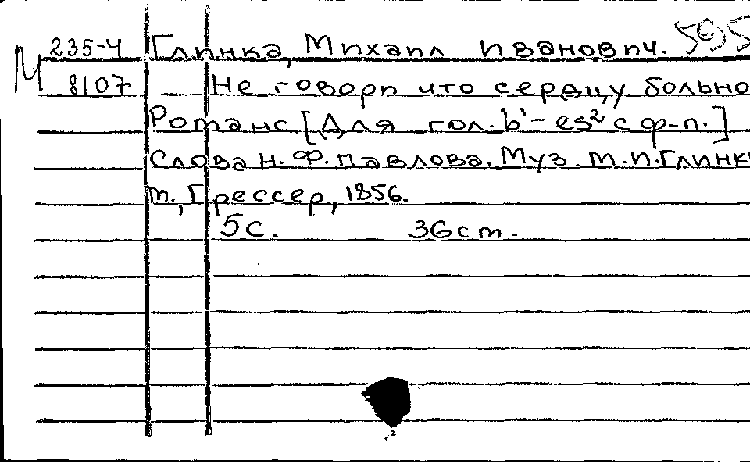 235-4 Глинка, Михаил Иванович. 595
М 8107 Не говори что сердцу больно
Романс [Для гол. b'-es² с ф-п.]
Слова Н. Ф. Павлова. Муз. М. И. Глинк
м., Грессер, 1856.
5с. 36 cm.